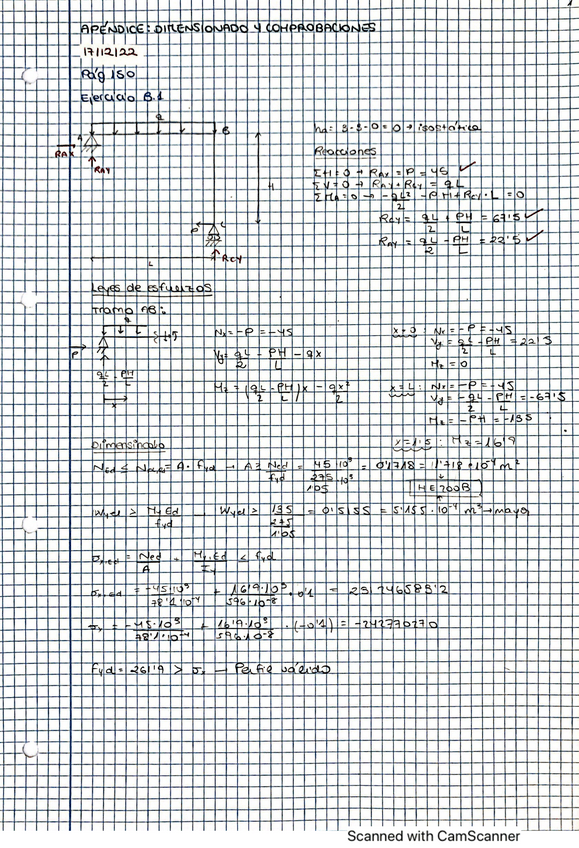 1
APÉNDICE: DIMENSIONADO Y COMPROBACIONES
17/12/22
Pág 150
Ejercicio B.1
q
A B
RAX
RAY
H
P C
RCY
L
ha: 3-3-0=0 → isostática
Reacciones
ΣH=0 → RAX = P = 45 ✓
ΣV=0 → RAY + RCY = qL
ΣMA=0 → -qL²/2 - PH + RCY·L = 0
RCY = qL/2 + PH/L = 67'5 ✓
RAY = qL/2 - PH/L = 22'5 ✓
Leyes de esfuerzos
Tramo AB:
q
P
qL/2 - PH/L
x
Nx = -P = -45
Vy = qL/2 - PH/L - qx
Mz = (qL/2 - PH/L)x - qx²/2
x=0: Nx = -P = -45
Vy = qL/2 - PH/L = 22'5
Mz = 0
x=L: Nx = -P = -45
Vy = -qL/2 - PH/L = -67'5
Mz = -PH = -135
x=1'5: Mz = 16'9
Dimensionado
NEd ≤ = A · fyd → A ≥ NEd/fyd = 45·10³/(275/1'05 ·10³) = 0'1718 = 1'718·10⁻⁴ m²
HE200B
Wyel ≥ My,Ed/fyd Wyel ≥ 135/(275/1'05) = 0'5155 = 5'155·10⁻⁴ m³ → mayor
σx,Ed = NEd/A + My,Ed/Iy ≤ fyd
σx,Ed = -45·10³/78'1·10⁻⁴ + 16'9·10³/596·10⁻⁸ · 0'1 =
σx = -45·10³/78'1·10⁻⁴ + 16'9·10³/596·10⁻⁸ · (-0'1) =
fyd = 261'9 > σx → Perfil válido
Scanned with CamScanner